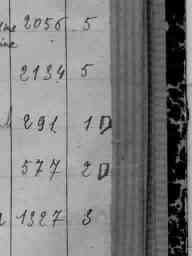 2056 5
2134 5
291 1D
577 2D
1327 3